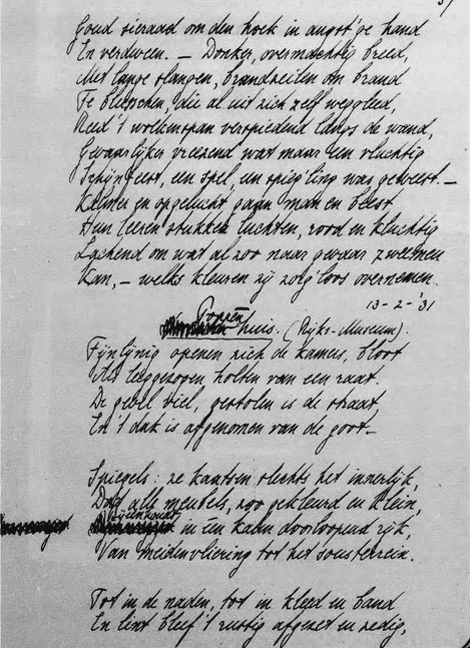 Goud sieraad om den hoek in angst'ge hand
En verdween. — Donker, overmachtig breed,
Met lange slangen, brandzeilen om brand
Te blusschen, die al uit zich zelf weggleed,
Reed 't wolkenspan verspiedend langs de wand,
Gevaarlijker vreezend wat maar een vluchtig
Schijnfeest, een spel, een spieg'ling was geweest. —
Kalmer en opgelucht gaan man en beest
Hun leeren stukken luchten, rood en kluchtig
Lachend om wat al zoo naar gevaar zweemen
Kan, — welks kleuren zij zorg'loos overnemen.
13-2-'31
Poppen
huis. (Rijks-Museum).
Fijnlijnig openen zich de kamers, bloot
Als leeggezogen holten van een raat.
De gevel viel, gestolen is de straat,
En 't dak is afgenomen van de goot. —
Spiegels: ze kaatsen slechts het innerlijk,
Dat alle meubels, zoo gekleurd en klein,
in één kalm doorloopend rijk,
Van meidenvliering tot het sousterrein.
Tot in de naden, tot in kleed en band
En lint bleef 't rustig afgezet en zedig,